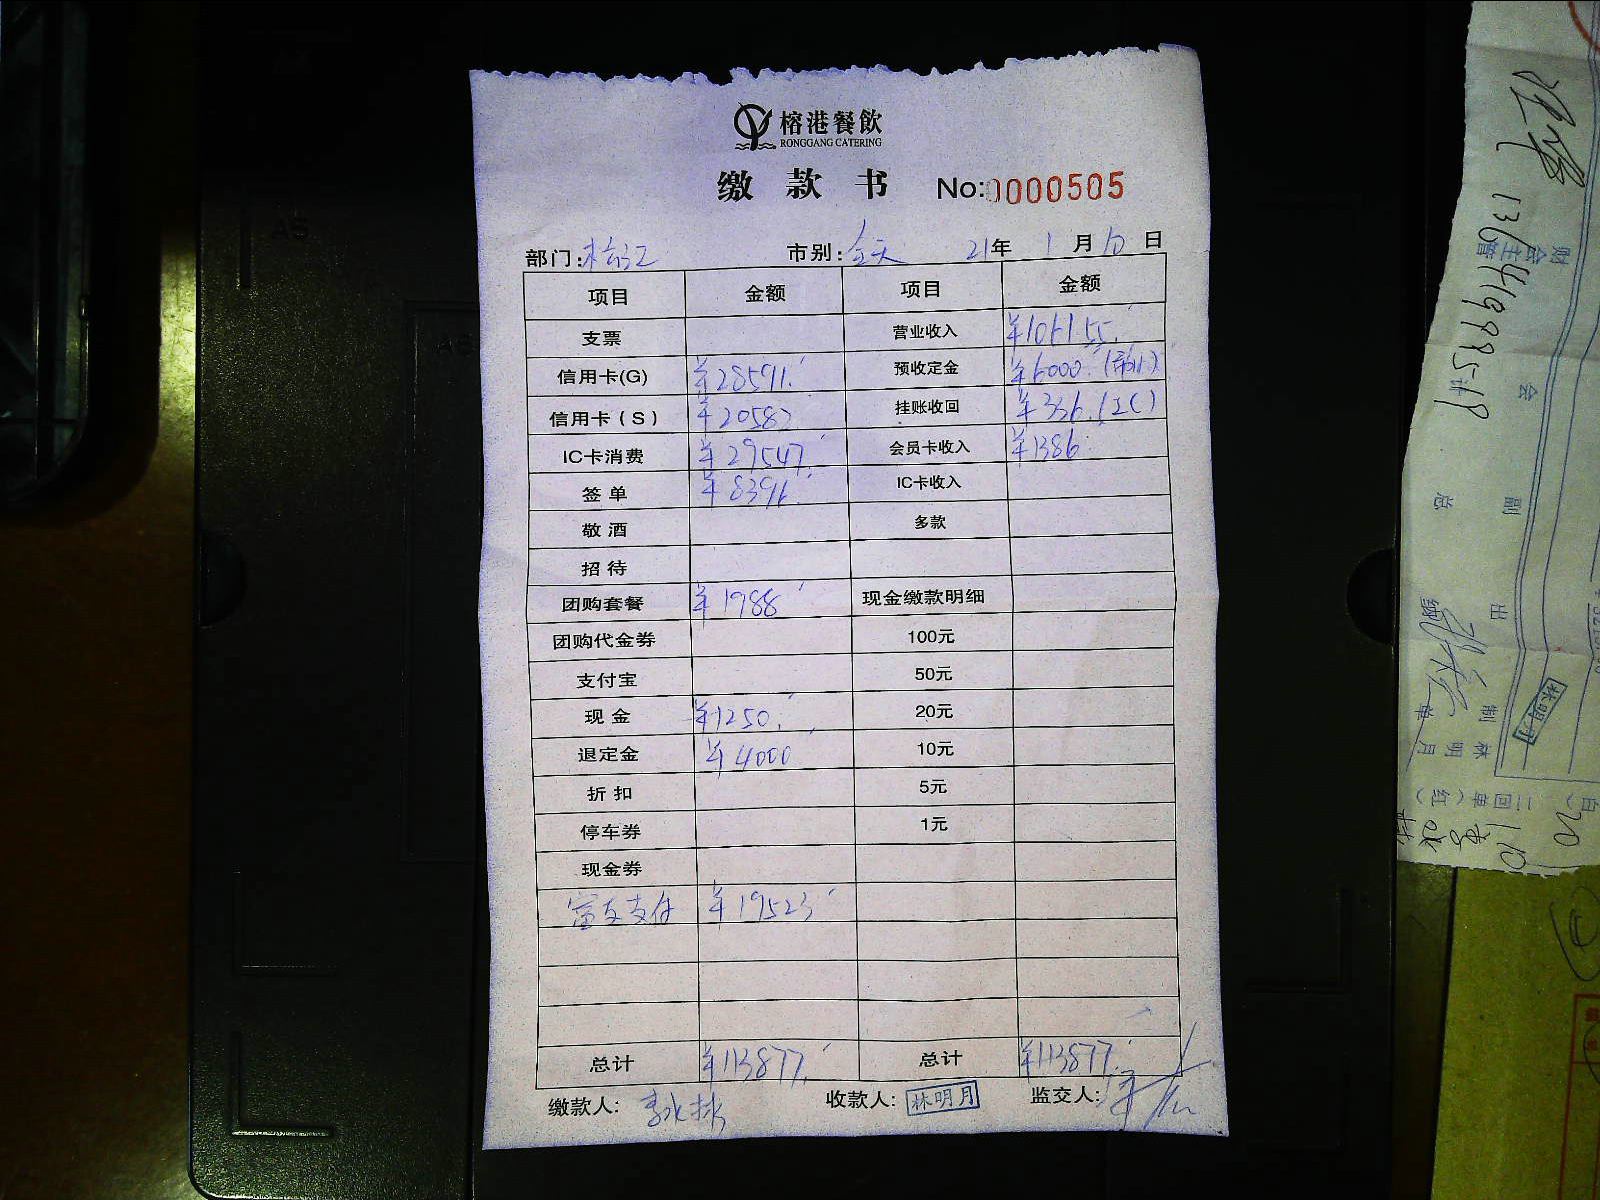 榕港餐飲
RONGGANG CATERING
缴款书 No:0000505
部门: 市别:全天 21年 1月10日
项目 金额 项目 金额
支票 营业收入 ¥106155.
信用卡(G) ¥28591. 预收定金 ¥6000.
信用卡(S) ¥20583 挂账收回 ¥336.(IC)
IC卡消费 ¥29547. 会员卡收入 ¥1386.
签单 ¥8391. IC卡收入
敬酒 多款
招待
团购套餐 ¥1988 现金缴款明细
团购代金券 100元
支付宝 50元
现金 ¥1250. 20元
退定金 ¥4000 10元
折扣 5元
停车券 1元
现金券
富友支付 ¥19523
总计 ¥113877. 总计 ¥113877.
缴款人: 收款人:林明月 监交人:
财会主管
13641999549
会计
副总
出纳
林明月
制单
林明月
二回单(红)